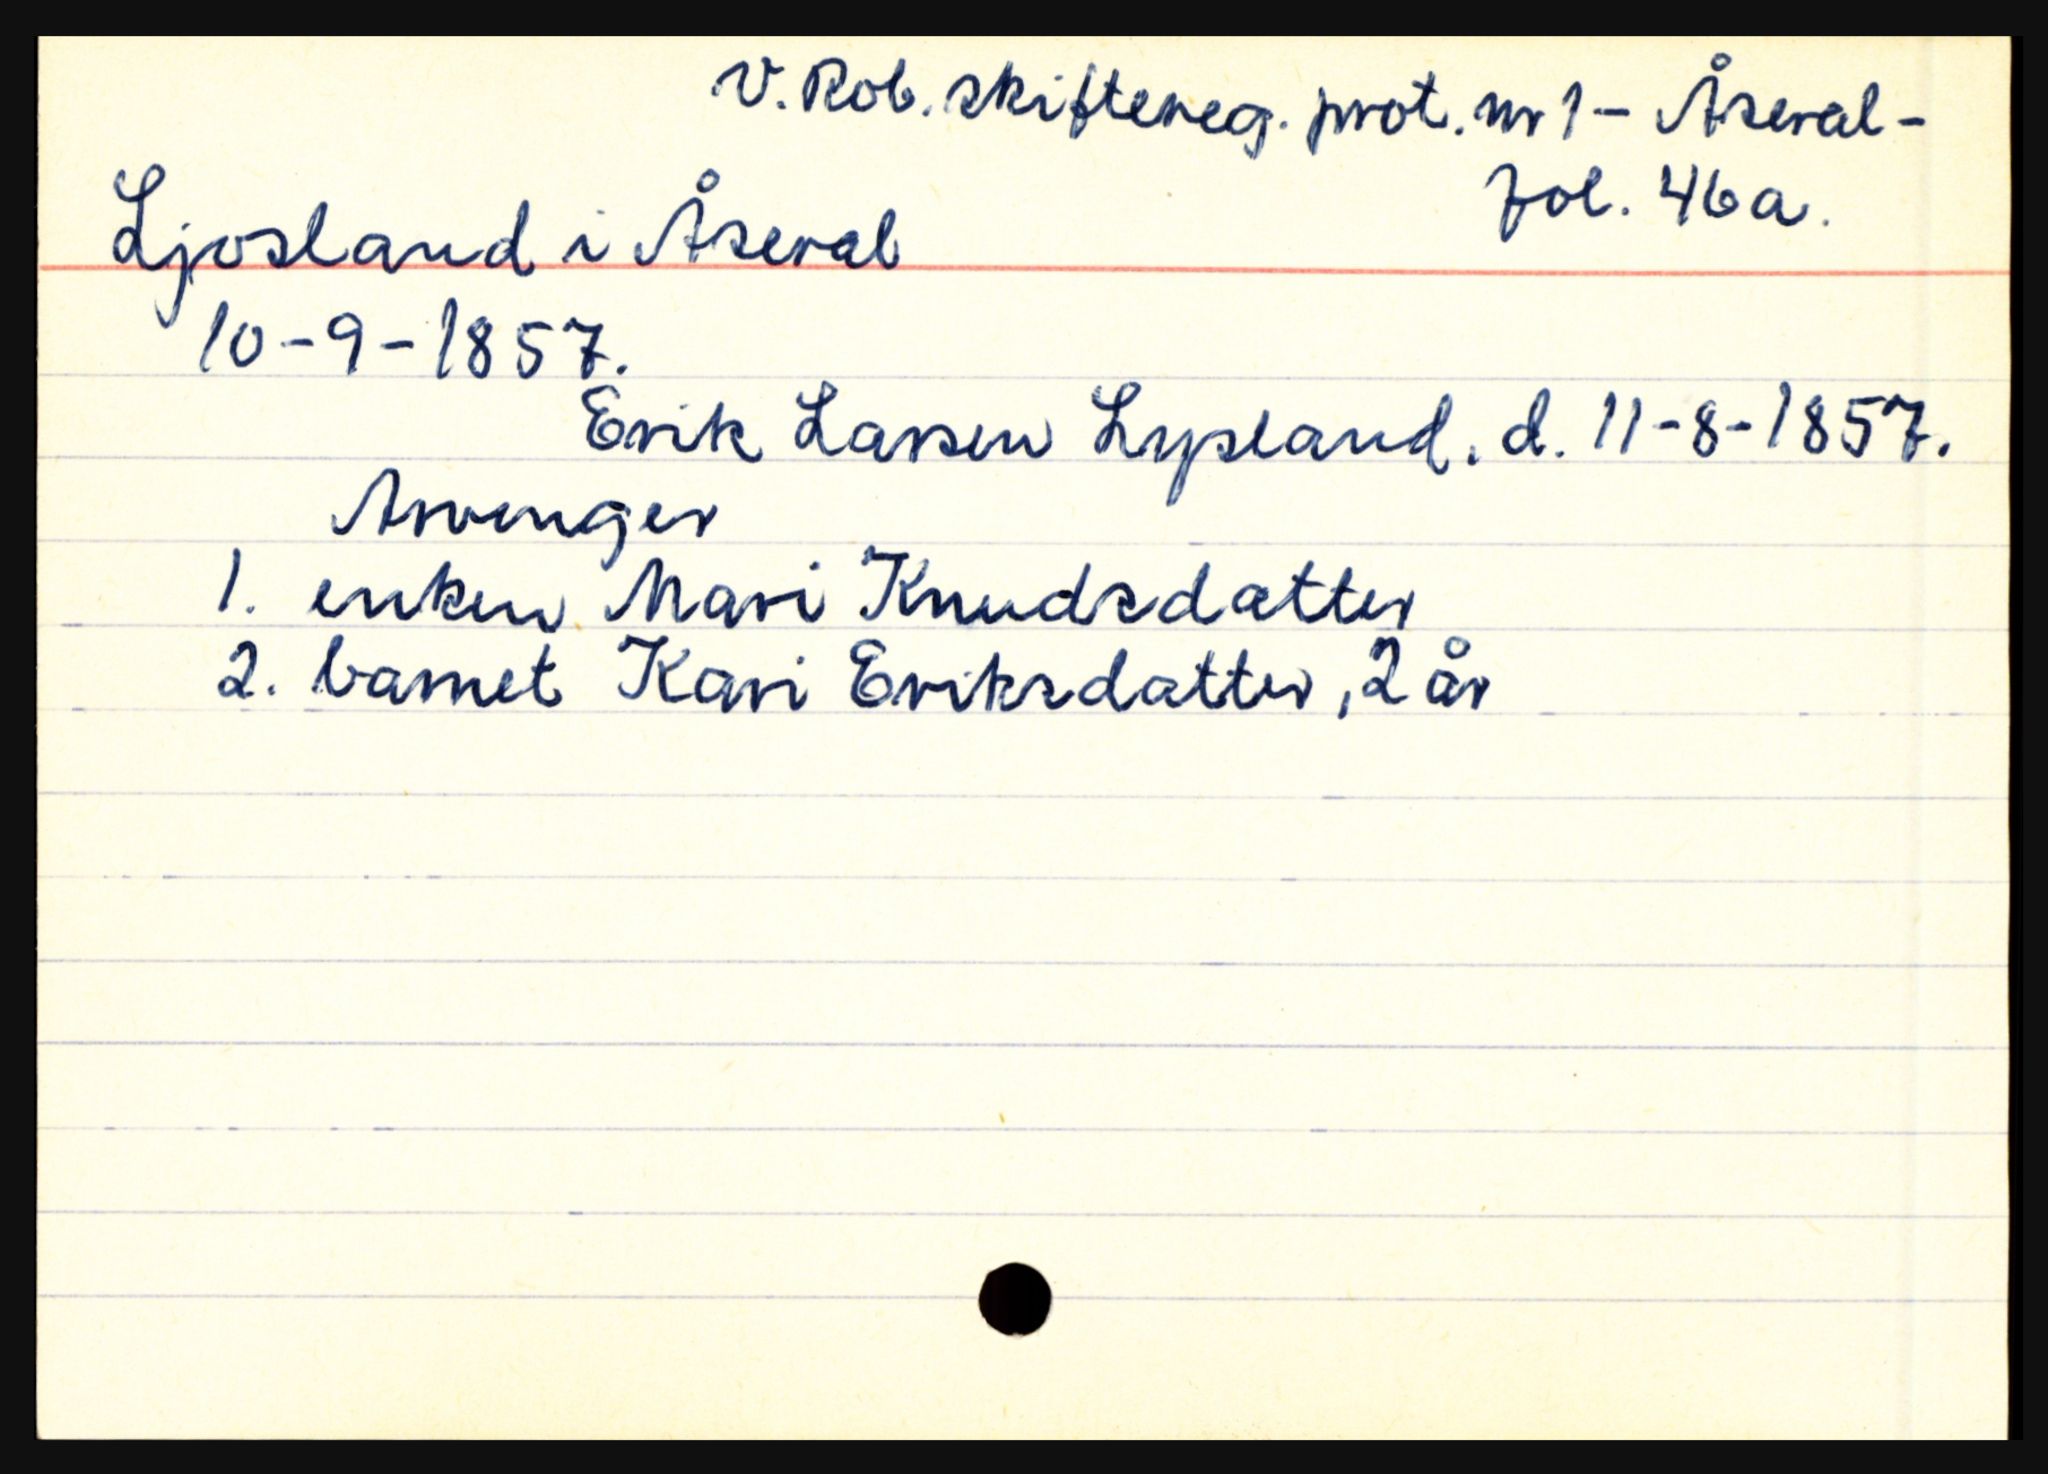 V. Rob. skiftereg. prot. nr 1 – Åseral –
fol. 46a.
Ljosland i Åseral
10-9-1857.
Erik Larsen Lysland. d. 11-8-1857.
Arvenger
1. enken Mari Knudsdatter
2. barnet Kari Eriksdatter, 2 år